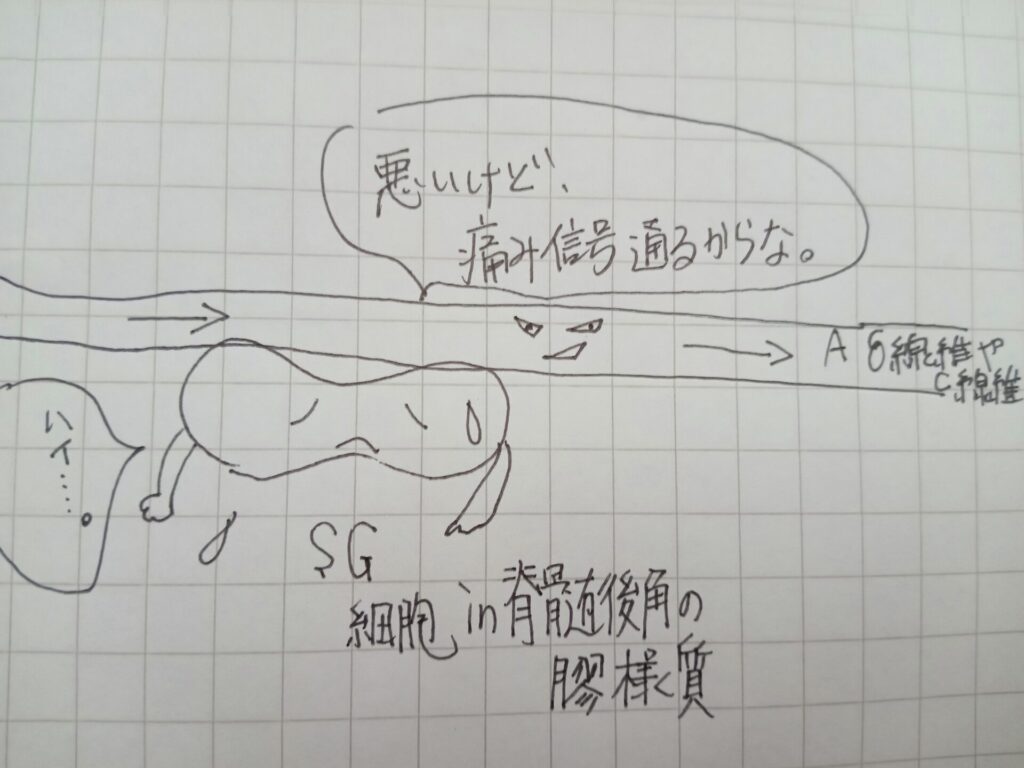 悪いけど、
痛み信号通るからな。
Aδ線維や
C線維
ハイ……。
SG
細胞 in 脊髄後角の
膠様質